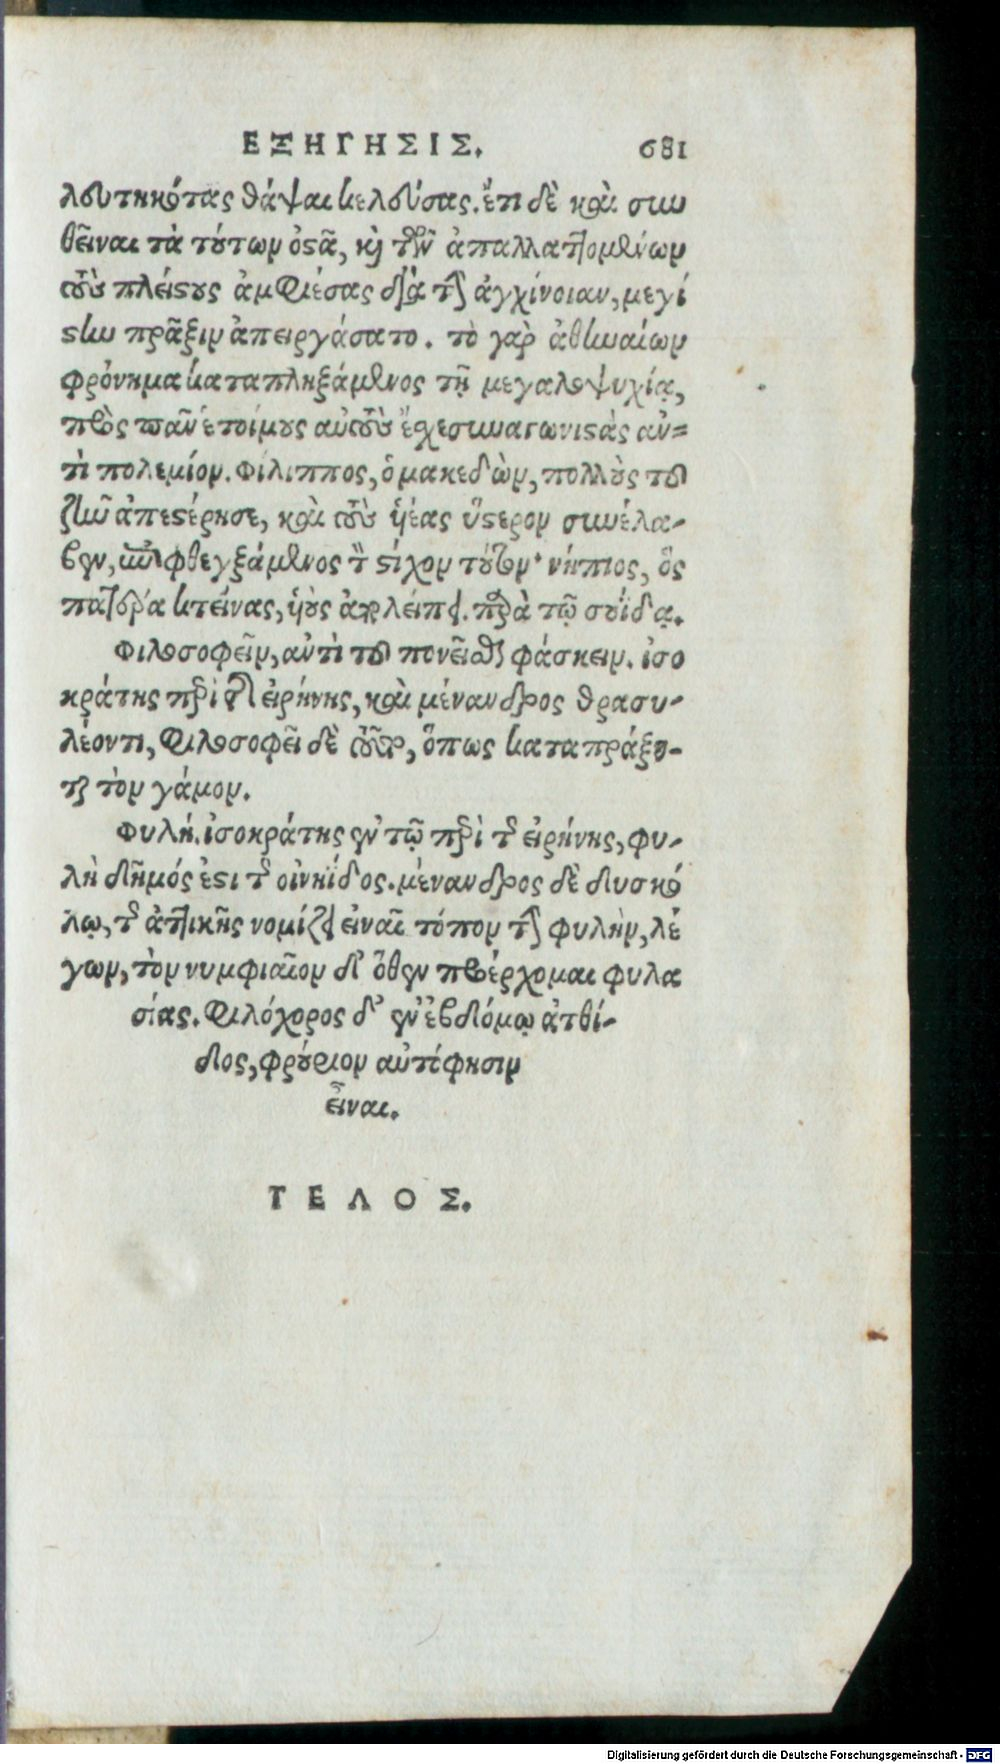 ΕΞΗΓΗΣΙΣ. 681
λευτηκότας θάψαι κελεύσας. ἔτι δὲ καὶ συν
θεῖναι τὰ τούτων ὀστᾶ, καὶ τῶν ἀπαλλαττομένων
τοὺς πλείστους ἀμφιέσας διὰ τὴν ἀγχίνοιαν, μεγί
στην πρᾶξιν ἀπειργάσατο. τὸ γὰρ ἀθηναίων
φρόνημα καταπληξάμενος τῇ μεγαλοψυχίᾳ,
πρὸς πᾶν ἑτοίμους αὐτοὺς ἔχε συναγωνιστὰς ἀν=
τὶ πολεμίον. Φίλιππος, ὁ μακεδὼν, πολλοὺς τοῦ
ζῆν ἀπεστέρησε, καὶ τοὺς ἡέας ὕστερον συνέλα-
βεν, ἐπιφθεγξάμενος τὸν στίχον τοῦτον· νήπιος, ὃς
πατέρα κτείνας, ἡοὺς καταλείπει. παρὰ τῷ σουίδᾳ.
Φιλοσοφεῖν, ἀντὶ τοῦ πονεῖσθαι φάσκειν. ἰσο
κράτης περὶ τῆς εἰρήνης, καὶ μένανδρος θρασυ-
λέοντι, φιλοσοφεῖ δὲ τοῦτο, ὅπως καταπράξε-
ται τὸν γάμον.
Φυλή. ἰσοκράτης ἐν τῷ περὶ τῆς εἰρήνης, φυ-
λὴ δῆμός ἐστι τῆς οἰνηΐδος. μένανδρος δὲ δυσκό
λῳ, τῆς ἀττικῆς νομίζει εἶναι τόπον τὴν φυλὴν, λέ
γων, τὸν νυμφιαῖον δ' ὅθεν προέρχομαι φυλα
σίας. Φιλόχορος δ' ἐν ἑβδόμῳ ἀτθί-
δος, φρούριον αὐτό φησιν
εἶναι.
ΤΕΛΟΣ.
Digitalisierung gefördert durch die Deutsche Forschungsgemeinschaft - DFG